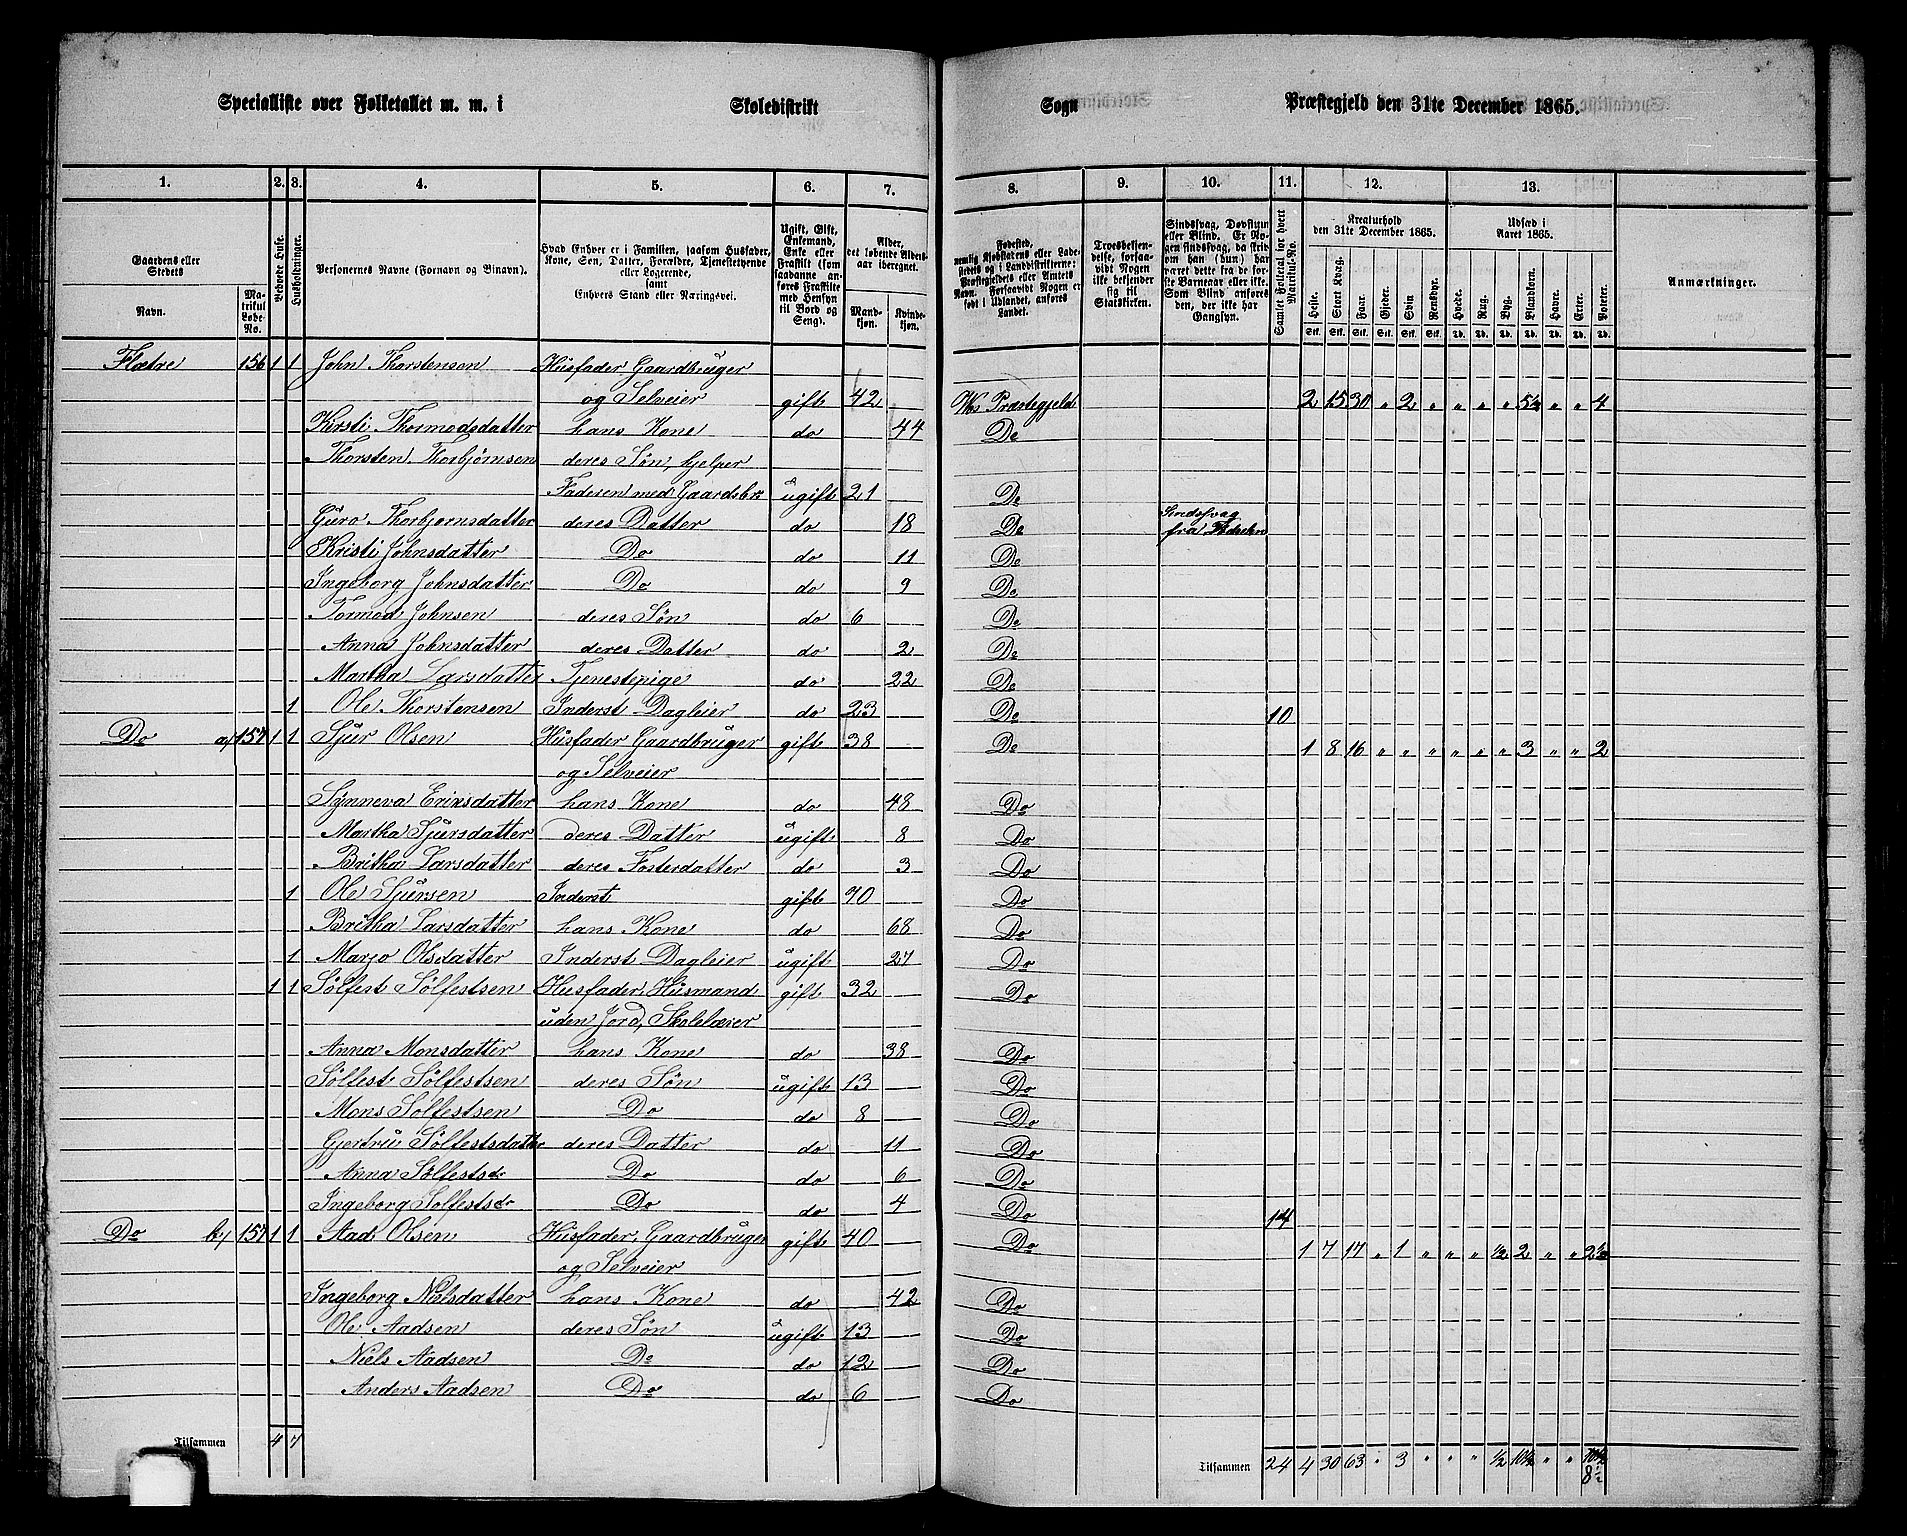 Specialliste over Folketallet m. m. i Skoledistrikt Sogn Præstegjeld den 31te December 1865.
1. 2. 3. 4. 5. 6. 7. 8. 9. 10. 11. 12. 13.
Gaardens eller Stedets
Navn. Matrikul Løbe-No.
Beboede Huse.
Husholdninger.
Personernes Navne (Fornavn og Binavn).
Hvad Enhver er i Familien, saasom Husfader, Kone, Søn, Datter, Forældre, Tjenestetyende eller Logerende, samt Enhvers Stand eller Næringsvei.
Ugift, Gift, Enkemand, Enke eller Fraskilt (som saadanne anføres Fraskilte med Hensyn til Bord og Seng).
Alder, det løbende Alders-aar iberegnet.
Mand-kjøn. Kvinde-kjøn.
Fødested, nemlig Kjøbstadens eller Lade-stedets og i Landdistrikterne: Præstegjeldets eller Amtets Navn. Forsaavidt Nogen er født i Udlandet, anføres Landet.
Troesbekjen-delse, forsaa-vidt Nogen ikke bekjender sig til Statskirken.
Sindssvag, Døvstum eller Blind. Er No-gen sindssvag, da skri-ves om han (hun) har været dette fra de før-ste Barneaar eller ikke. Som Blind anføres den, der ikke har Gangsyn.
Samlet Folketal for hvert Matrikul-No.
Kreaturhold den 31te December 1865.
Heste. Stort Kvæg. Faar. Gjeder. Svin Rensdyr.
Udsæd i Aaret 1865.
Hvede. Rug. Byg. Blandkorn. Havre. Erter. Poteter.
Stk. Stk. Stk. Stk. Stk. Stk. Td. Td. Td. Td. Td. Td. Td.
Anmærkninger.
Flætre 156 1 1 John Thorstensen Husfader Gaardbruger
og Selveier gift 42 Præstegjeld 2 15 30 " 2 " " " " 5½ " " 4
Kirsti Thormodsdatter hans Kone do 44 Do
Thorsten Thorbjørnsen deres Søn, hjelper
Faderen med Gaardsbr. ugift 21 Do
Guro Thorbjørnsdatter deres Datter do 18 Do Sindssvag
fra Fødselen
Kristi Johnsdatter Do do 11 Do
Ingeborg Johnsdatter Do do 9 Do
Tormod Johnsen deres Søn do 6 Do
Anna Johnsdatter deres Datter do 2 Do
Martha Larsdatter Tjenestepige do 22 Do
1 Ole Thorstensen Inderst Dagleier do 23 Do 10
Do a) 157 1 1 Sjur Olsen Husfader Gaardbruger gift 38 Do 1 8 16 " " " " " " 3 " " 2
og Selveier
Synneva Eriksdatter hans Kone do 48 Do
Martha Sjursdatter deres Datter ugift 8 Do
Britha Larsdatter deres Fosterdatter do 3 Do
1 Ole Sjursen Inderst gift 70 Do
Britha Larsdatter hans Kone do 68 Do
1 Marjo Olsdatter Inderst Dagleier ugift 27 Do
1 1 Sølfest Sølfestsen Husfader, Husmand gift 32 Do
uden Jord, Skolelærer
Anna Monsdatter hans Kone do 38 Do
Sølfest Sølfestsen deres Søn ugift 13 Do
Mons Sølfestsen Do do 8 Do
Gjertru Sølfestsdatter deres Datter do 11 Do
Anna Sølfestsdr Do do 6 Do
Ingeborg Sølfestsdr Do do 4 Do 14
Do b) 157 1 1 Aad Olsen Husfader, Gaardbruger gift 40 Do 1 7 17 " 1 " " " ½ 2 " " 2½
og Selveier
Ingeborg Nielsdatter hans Kone do 42 Do
Ole Aadsen deres Søn ugift 13 Do
Niels Aadsen Do do 12 Do
Anders Aadsen Do do 6 Do
Tilsammen 4 7 Tilsammen 24 4 30 63 " 3 " " " ½ 10½ " " 10½
8½